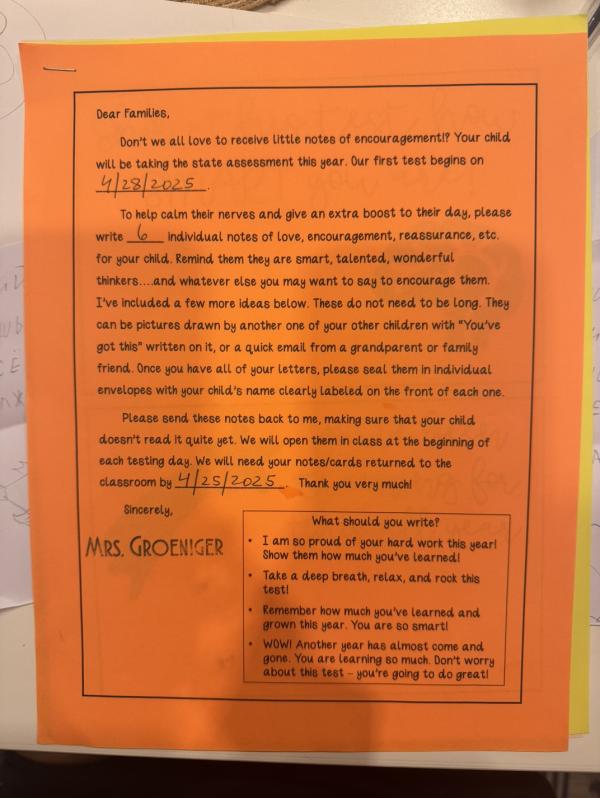 Dear Families,
Don't we all love to receive little notes of encouragement!? Your child
will be taking the state assessment this year. Our first test begins on
4/28/2025.
To help calm their nerves and give an extra boost to their day, please
write 6 individual notes of love, encouragement, reassurance, etc.
for your child. Remind them they are smart, talented, wonderful
thinkers....and whatever else you may want to say to encourage them.
I've included a few more ideas below. These do not need to be long. They
can be pictures drawn by another one of your other children with "You've
got this" written on it, or a quick email from a grandparent or family
friend. Once you have all of your letters, please seal them in individual
envelopes with your child's name clearly labeled on the front of each one.
Please send these notes back to me, making sure that your child
doesn't read it quite yet. We will open them in class at the beginning of
each testing day. We will need your notes/cards returned to the
classroom by 4/25/2025. Thank you very much!
Sincerely,
MRS. GROENIGER
What should you write?
• I am so proud of your hard work this year!
Show them how much you've learned!
• Take a deep breath, relax, and rock this
test!
• Remember how much you've learned and
grown this year. You are so smart!
• WOW! Another year has almost come and
gone. You are learning so much. Don't worry
about this test – you're going to do great!